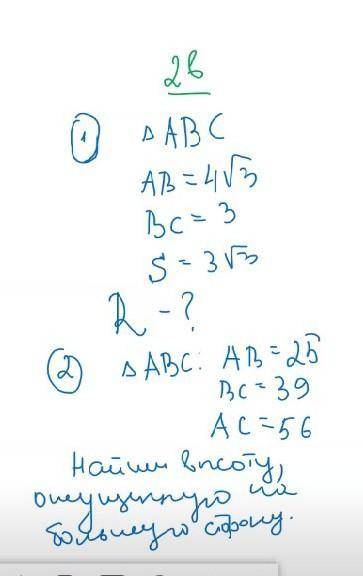 2в
① △ ABC
AB = 4√3
BC = 3
S = 3√3
R - ?
② △ ABC: AB = 25
BC = 39
AC = 56
Найти высоту,
опущенную на
большую сторону.